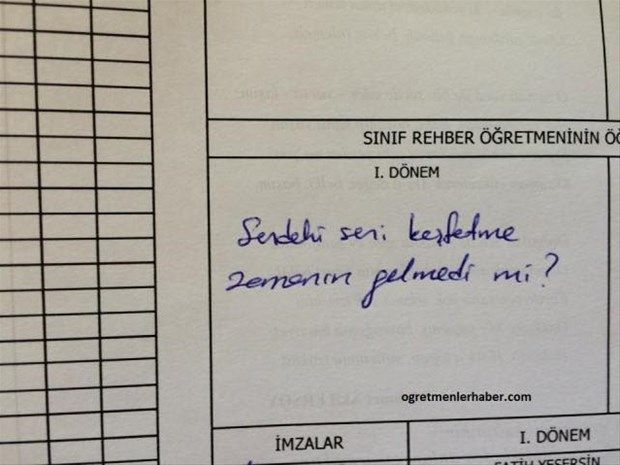 SINIF REHBER ÖĞRETMENİNİN ÖĞ
I. DÖNEM
Sendeki seni keşfetme
zamanın gelmedi mi?
ogretmenlerhaber.com
İMZALAR
I. DÖNEM
FATİH YEŞERSİN